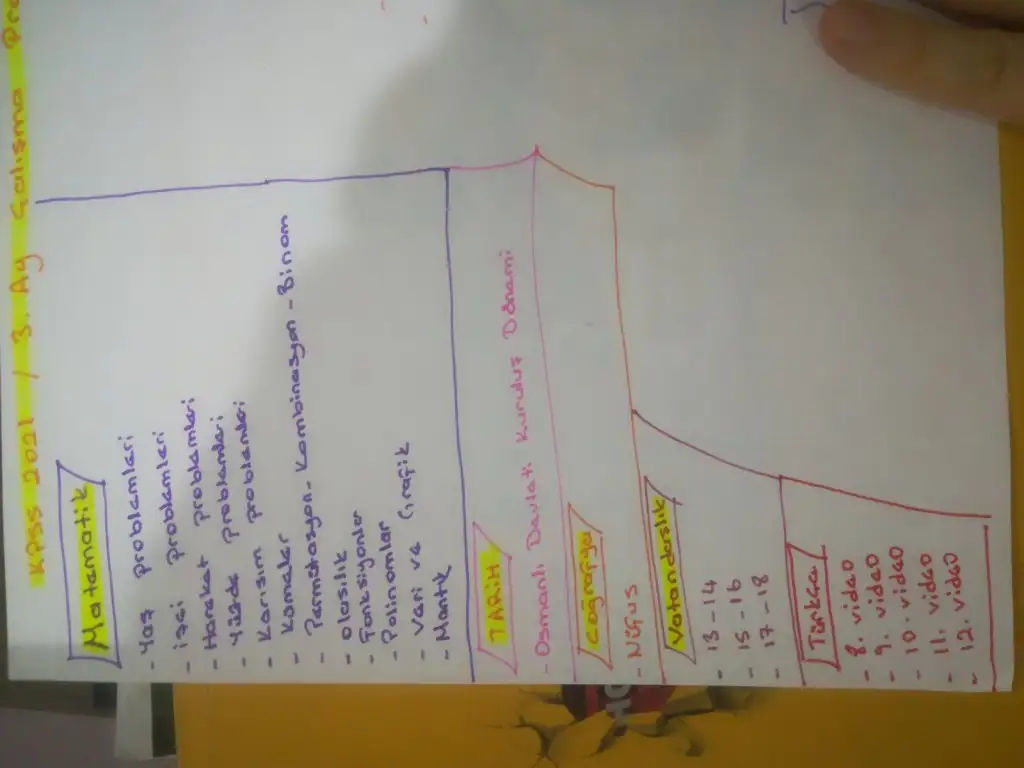 KPSS 2021 / 3. Ay Çalışma Pro
Matematik
- Yaş problemleri
- işçi problemleri
- Hareket problemleri
- Yüzde problemleri
- Karışım problemleri
- Kümeler
- Permütasyon - Kombinasyon - Binom
- olasılık
- Fonksiyonlar
- Polinomlar
- Veri ve Grafik
- Mantık
TARİH
- Osmanlı Devleti Kuruluş Dönemi
Coğrafya
- Nüfus
Vatandaşlık
- 13 - 14
- 15 - 16
- 17 - 18
Türkçe
- 8. video
- 9. video
- 10. video
- 11. video
- 12. video